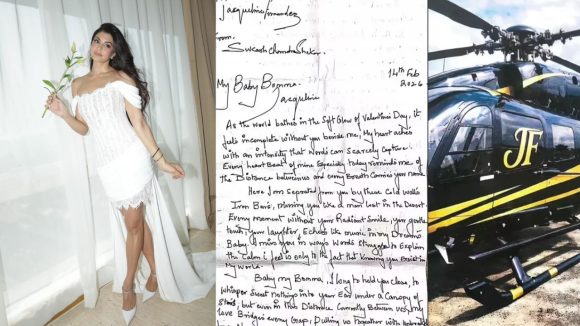 Jacqueline Fernandez
from,
Sukash Chandrashekar
14th Feb
2026
My Baby Bomma
Jacqueline
As the world bathes in the Soft Glow of Valentines Day, it
feels incomplete without you beside me, My heart aches
with an intensity that words can scarcely capture.
Every heart Beat of mine Especially today reminds me of
the Distance between us and every Breath Carries your Name
Here I am separated from you by these Cold walls
Iron Bars, missing you like a man lost in the Desert
Every moment without your Radiant Smile, your gentle
touch, your laughter, Echoes like music in my Dreams
Baby I miss you in ways words struggle to Explain
the Calm i feel is only to the fact that knowing you Exist in
My world.
Baby my Bomma, I long to hold you close, to
whisper Sweet nothings into your Ear under a Canopy of
Stars, but even in this Distance Currently Between us, my
love Bridges every Gap, Pulling us together with
JF